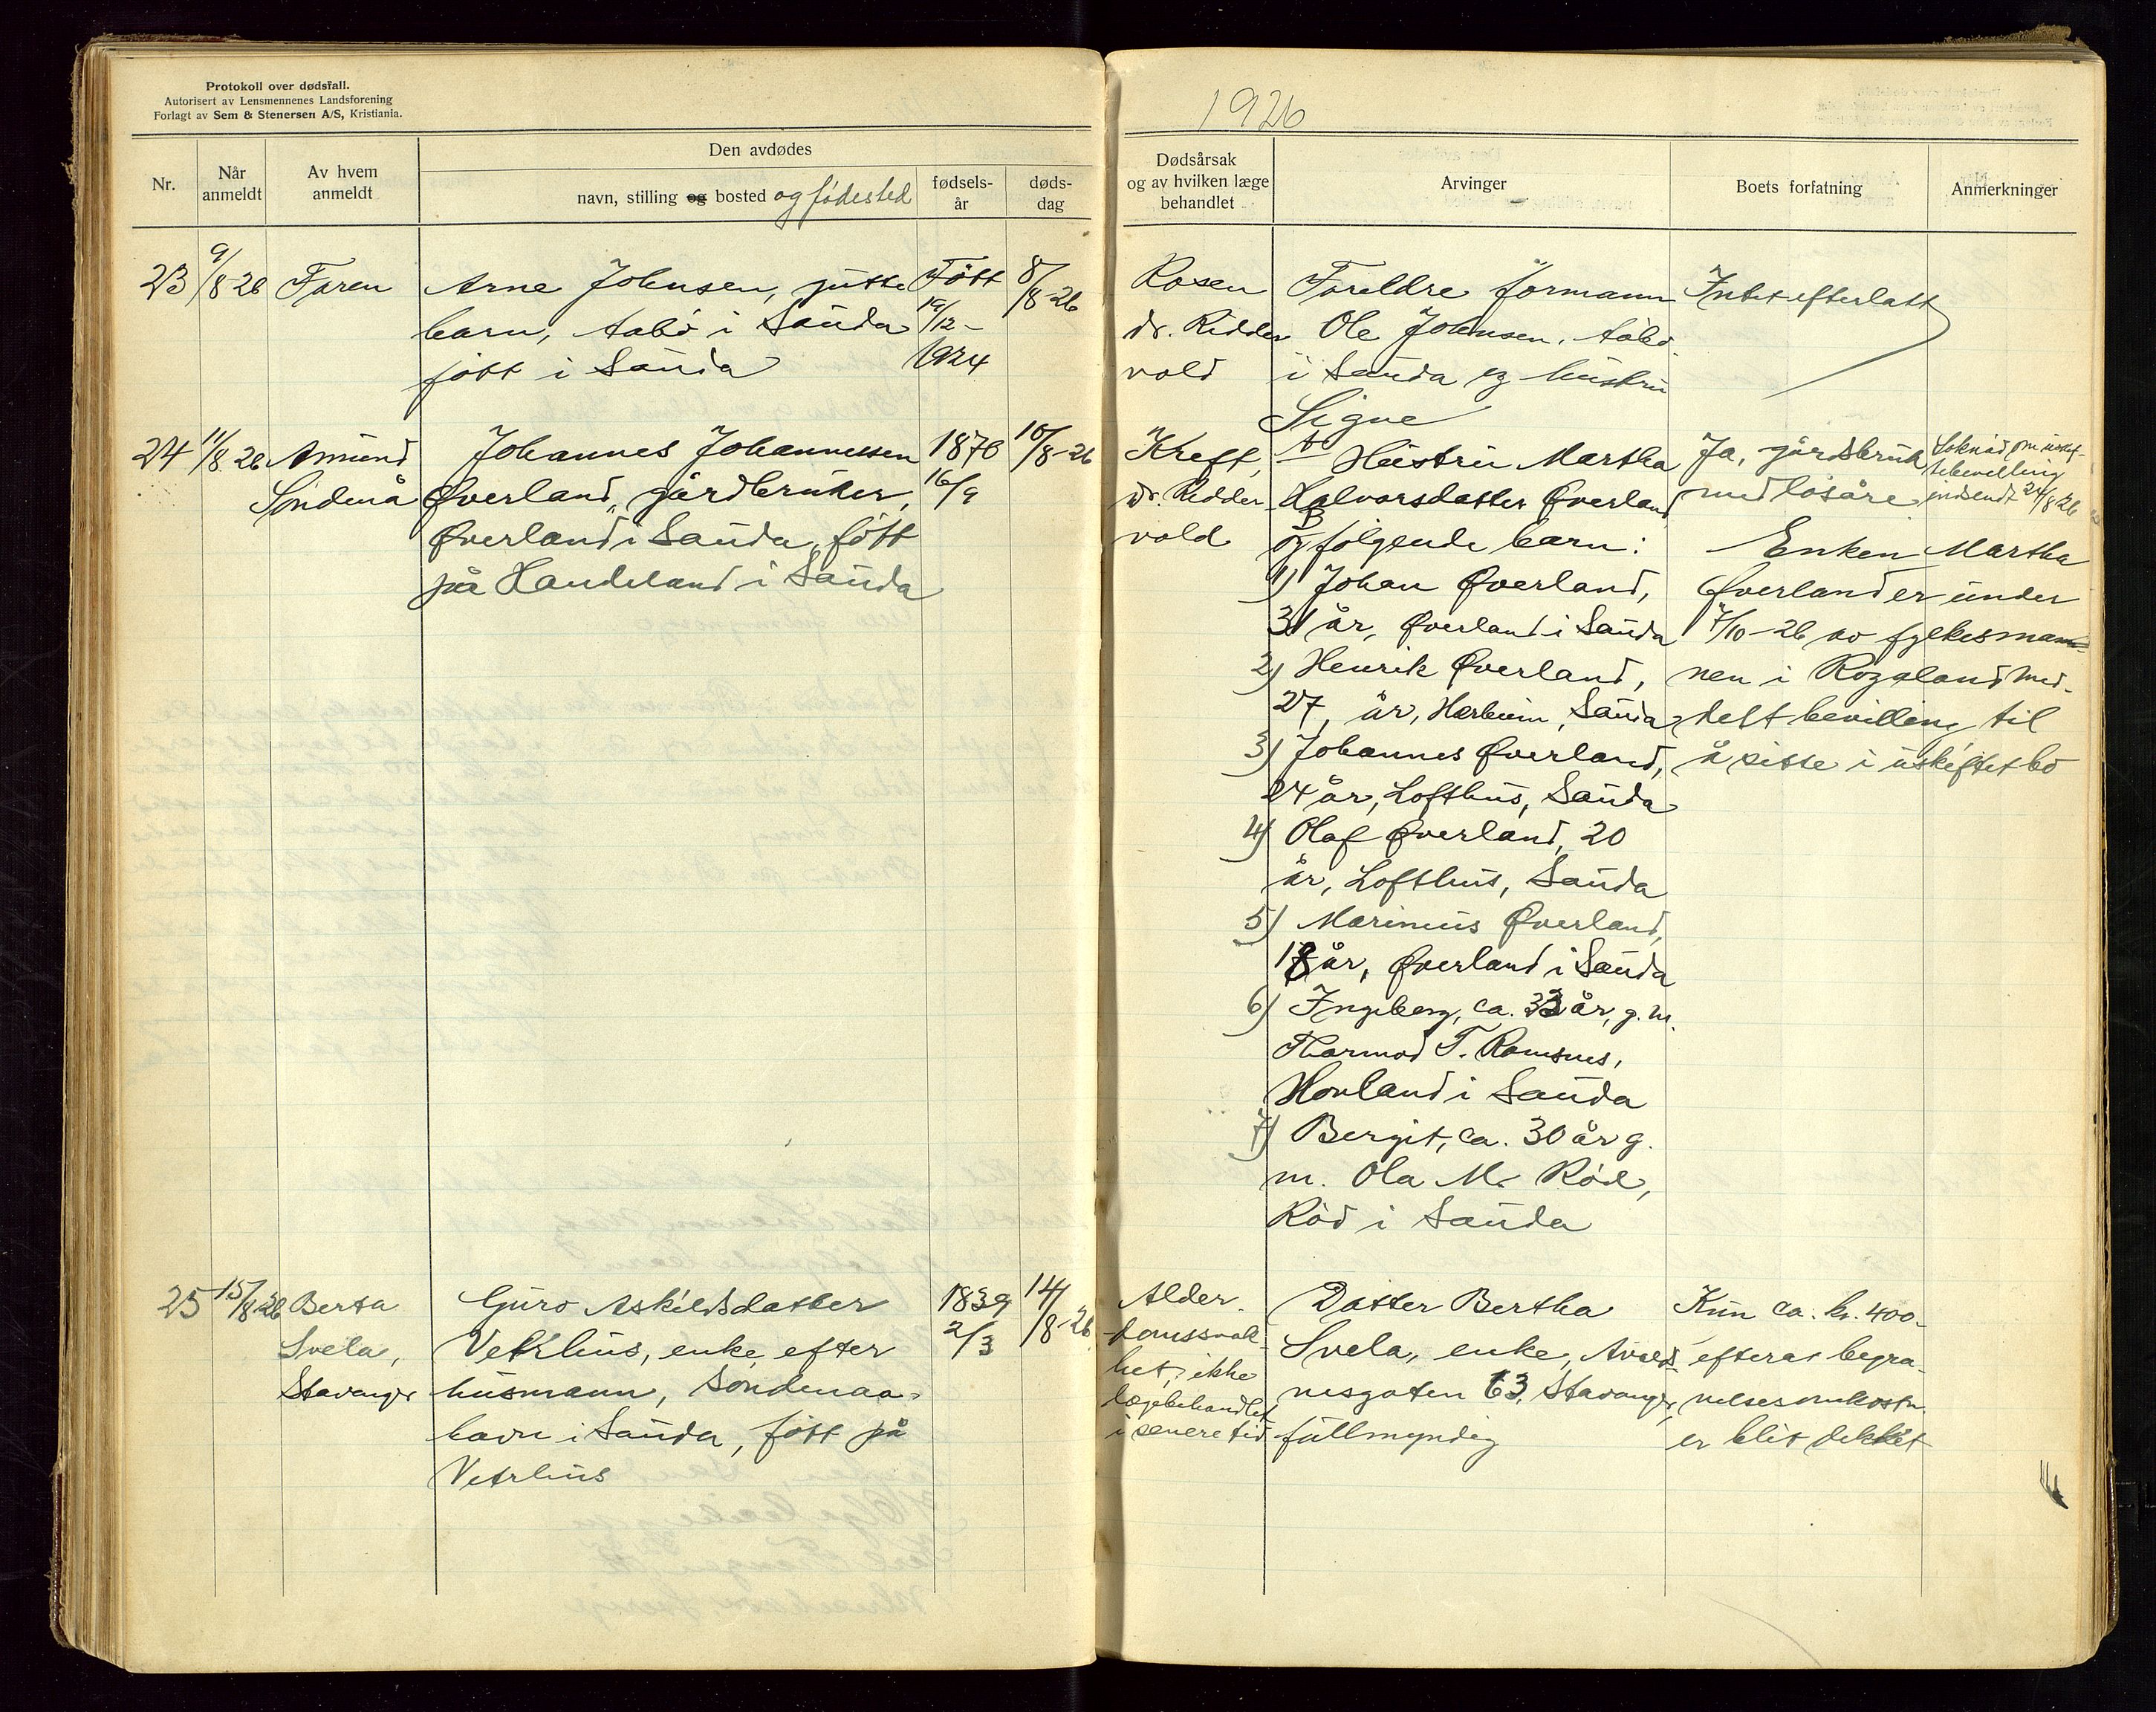 Protokoll over dødsfall.
Autorisert av Lensmennenes Landsforening
Forlagt av Sem & Stenersen A/S, Kristiania.
1926
Nr.
Når anmeldt
Av hvem anmeldt
Den avdødes
navn, stilling og bosted og fødested
fødsels-år
døds-dag
Dødsårsak og av hvilken læge behandlet
Arvinger
Boets forfatning
Anmerkninger
23
9/8 26
Faren
Arne Johnsen, gutte
barn, Aabø i Sauda
født i Sauda
Født
19/12-
1924
8/8-26
Rosen
dr. Ridder
vold
Foreldre formann
Ole Johnsen, Aabø
i Sauda og hustru
Signe
Intet efterlatt
24
11/8 26
Amund
Søndenå
Johannes Johannessen
Øverland, gårdbruker,
Øverland i Sauda, født
på Handeland i Sauda
1870
16/9
10/8-26
Kreft,
dr. Ridder
vold
A Hustru Martha
Halvorsdatter Øverland
B
og følgende barn:
1) Johan Øverland,
31 år, Øverland i Sauda
2) Henrik Øverland,
27 år, Herheim, Sauda
3) Johannes Øverland,
24 år, Lofthus, Sauda
4) Olaf Øverland, 20
år, Lofthus, Sauda
5) Marinius Øverland,
18 år, Øverland i Sauda
6) Ingeborg, ca. 33 år, g. m.
Thormod T. Ramsnes,
Hovland i Sauda
7) Bergit, ca. 30 år g.
m. Ola M. Röd,
Röd i Sauda
Ja, gårdsbruk
med løsøre
Søknad om uskif-
tebevilling
indsendt 24/8 26
Enken Martha
Øverland er under
7/10-26 av fylkesman
nen i Rogaland med-
delt bevilling til
å sitte i uskiftet bo
25
15/8 26
Berta
Svela,
Stavanger
Guro Askildsdatter
Vetrhus, enke efter
husmann, Søndenaa-
havn i Sauda, født på
Vetrhus
1839
2/3
14/8-26
Alder-
domssvak
het, ikke
lægebehandlet
i senere tid
Datter Bertha
Svela, enke, Avalds
nesgaten 63, Stavanger,
fullmyndig
Kun ca. kr. 400-
efterat begra-
velsesomkostn.
er blit dekket